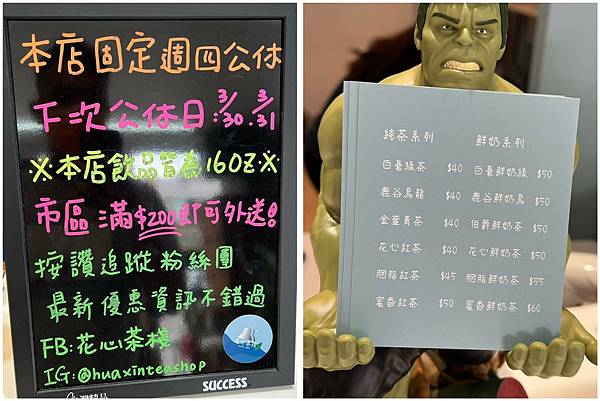 本店固定週四公休
下次公休日:3/30.3/31
※本店飲品皆為16OZ※
市區滿$200即可外送!
按讚追蹤粉絲團
最新優惠資訊不錯過
FB:花心茶棧
IG:@huaxinteashop
SUCCESS
純茶系列 鮮奶系列
白毫綠茶 $40 白毫鮮奶綠 $50
鹿谷烏龍 $40 鹿谷鮮奶烏 $50
金萱青茶 $40 伯爵鮮奶茶 $50
花心紅茶 $40 花心鮮奶茶 $50
胭脂紅茶 $45 胭脂鮮奶茶 $55
蜜香紅茶 $50 蜜香鮮奶茶 $60